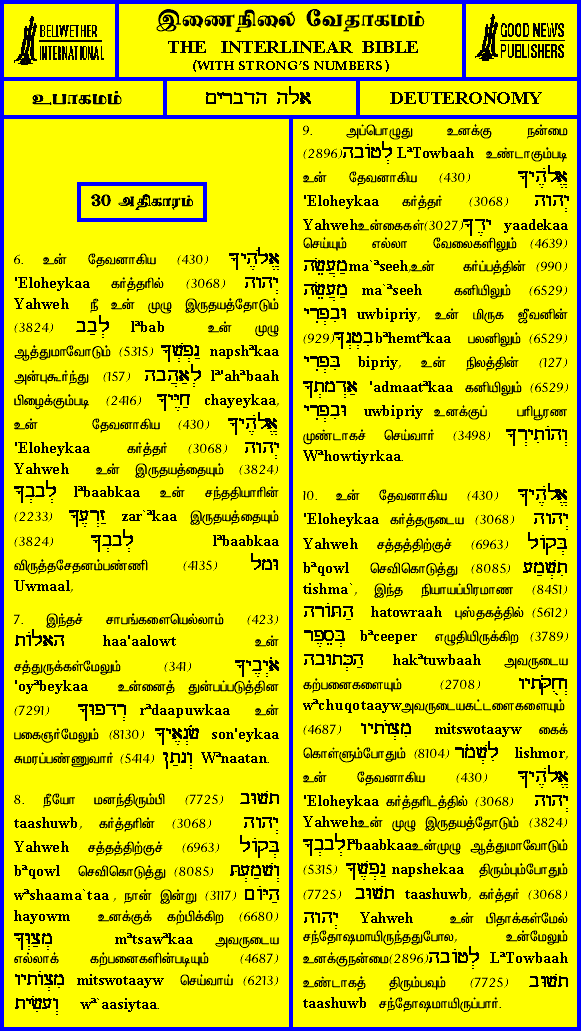 BELLWETHER
INTERNATIONAL
இணைநிலை வேதாகமம்
THE INTERLINEAR BIBLE
(WITH STRONG'S NUMBERS)
GOOD NEWS
PUBLISHERS
உபாகமம்
אלה הדברים
DEUTERONOMY
30 அதிகாரம்
6. உன் தேவனாகிய (430) אֱלֹהֶיךָ
'Eloheykaa கர்த்தரில் (3068) יְהוָה
Yahweh நீ உன் முழு இருதயத்தோடும்
(3824) לְבַב lªbab உன் முழு
ஆத்துமாவோடும் (5315) נַפְשְׁךָ napshªkaa
அன்புகூர்ந்து (157) לְאַהֲבָה lª'ahªbaah
பிழைக்கும்படி (2416) חַיֶּיךָ chayeykaa,
உன் தேவனாகிய (430) אֱלֹהֶיךָ
'Eloheykaa கர்த்தர் (3068) יְהוָה
Yahweh உன் இருதயத்தையும் (3824)
לְבָבְךָ lªbaabkaa உன் சந்ததியாரின்
(2233) זַרְעֶךָ zar`ªkaa இருதயத்தையும்
(3824) לְבָבְךָ lªbaabkaa
விருத்தசேதனம்பண்ணி (4135) וּמָל
Uwmaal,
7. இந்தச் சாபங்களையெல்லாம் (423)
הָאָלוֹת haa'aalowt உன்
சத்துருக்கள்மேலும் (341) אֹיְבֶיךָ
'oyªbeykaa உன்னைத் துன்பப்படுத்தின
(7291) רְדָפוּךָ rªdaapuwkaa உன்
பகைஞர்மேலும் (8130) שֹׂנְאֶיךָ son'eykaa
சுமரப்பண்ணுவார் (5414) וְנָתַן Wªnaatan.
8. நீயோ மனந்திரும்பி (7725) תָשׁוּב
taashuwb, கர்த்தரின் (3068) יְהוָה
Yahweh சத்தத்திற்குச் (6963) בְּקוֹל
bªqowl செவிகொடுத்து (8085) וְשָׁמַעְתָּ
wªshaama`taa , நான் இன்று (3117) הַיּוֹם
hayowm உனக்குக் கற்பிக்கிற (6680)
מְצַוְּךָ mªtsawªkaa அவருடைய
எல்லாக் கற்பனைகளின்படியும் (4687)
מִצְוֹתָיו mitswotaayw செய்வாய் (6213)
וְעָשִׂיתָ wª`aasiytaa.
9. அப்பொழுது உனக்கு நன்மை
(2896)לְטוֹבָה LªTowbaah உண்டாகும்படி
உன் தேவனாகிய (430) אֱלֹהֶיךָ
'Eloheykaa கர்த்தர் (3068) יְהוָה
Yahwehஉன்கைகள்(3027)יָדֶךָ yaadekaa
செய்யும் எல்லா வேலைகளிலும் (4639)
מַעֲשֵׂהma`aseeh,உன் கர்ப்பத்தின் (990)
מַעֲשֵׂה ma`aseeh கனியிலும் (6529)
וּבִפְרִי uwbipriy, உன் மிருக ஜீவனின்
(929)בִטְנְךָbªhemtªkaa பலனிலும் (6529)
בִּפְרִי bipriy, உன் நிலத்தின் (127)
אַדְמָתְךָ 'admaatªkaa கனியிலும் (6529)
וּבִפְרִי uwbipriy உனக்குப் பரிபூரண
முண்டாகச் செய்வார் (3498) וְהוֹתִירְךָ
Wªhowtiyrkaa.
10. உன் தேவனாகிய (430) אֱלֹהֶיךָ
'Eloheykaa கர்த்தருடைய (3068) יְהוָה
Yahweh சத்தத்திற்குச் (6963) בְּקוֹל
bªqowl செவிகொடுத்து (8085) תִשְׁמַע
tishma`, இந்த நியாயப்பிரமாண (8451)
הַתּוֹרָה hatowraah புஸ்தகத்தில் (5612)
בְּסֵפֶר bªceeper எழுதியிருக்கிற (3789)
הַכְּתוּבָה hakªtuwbaah அவருடைய
கற்பனைகளையும் (2708) וְחֻקֹּתָיו
wªchuqotaaywஅவருடையகட்டளைகளையும்
(4687) מִצְוֹתָיו mitswotaayw கைக்
கொள்ளும்போதும் (8104) לִשְׁמֹר lishmor,
உன் தேவனாகிய (430) אֱלֹהֶיךָ
'Eloheykaa கர்த்தரிடத்தில் (3068) יְהוָה
Yahwehஉன் முழு இருதயத்தோடும் (3824)
לְבָבְךָlªbaabkaaஉன்முழு ஆத்துமாவோடும்
(5315) נַפְשֶׁךָ napshekaa திரும்பும்போதும்
(7725) תָשׁוּב taashuwb, கர்த்தர் (3068)
יְהוָה Yahweh உன் பிதாக்கள்மேல்
சந்தோஷமாயிருந்ததுபோல, உன்மேலும்
உனக்குநன்மை(2896)לְטוֹבָה LªTowbaah
உண்டாகத் திரும்பவும் (7725) תָשׁוּב
taashuwb சந்தோஷமாயிருப்பார்.